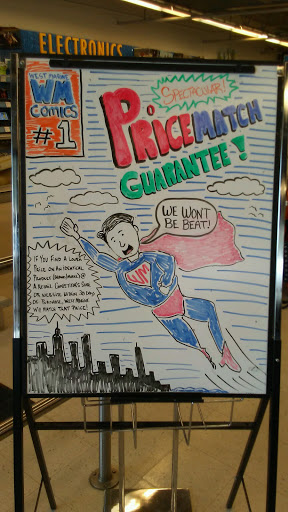 ELECTRONICS
WEST MARINE
WM
COMICS
#1
SPECTACULAR!
PRICEMATCH
GUARANTEE!
WE WON'T
BE BEAT!
WM
IF YOU FIND A LOWER
PRICE ON AN IDENTICAL
PRODUCT
A RETAIL COMPETITOR'S STORE
OR WEBSITE WITHIN 30 DAYS
OF PURCHASE, WEST MARINE
WILL MATCH THAT PRICE!